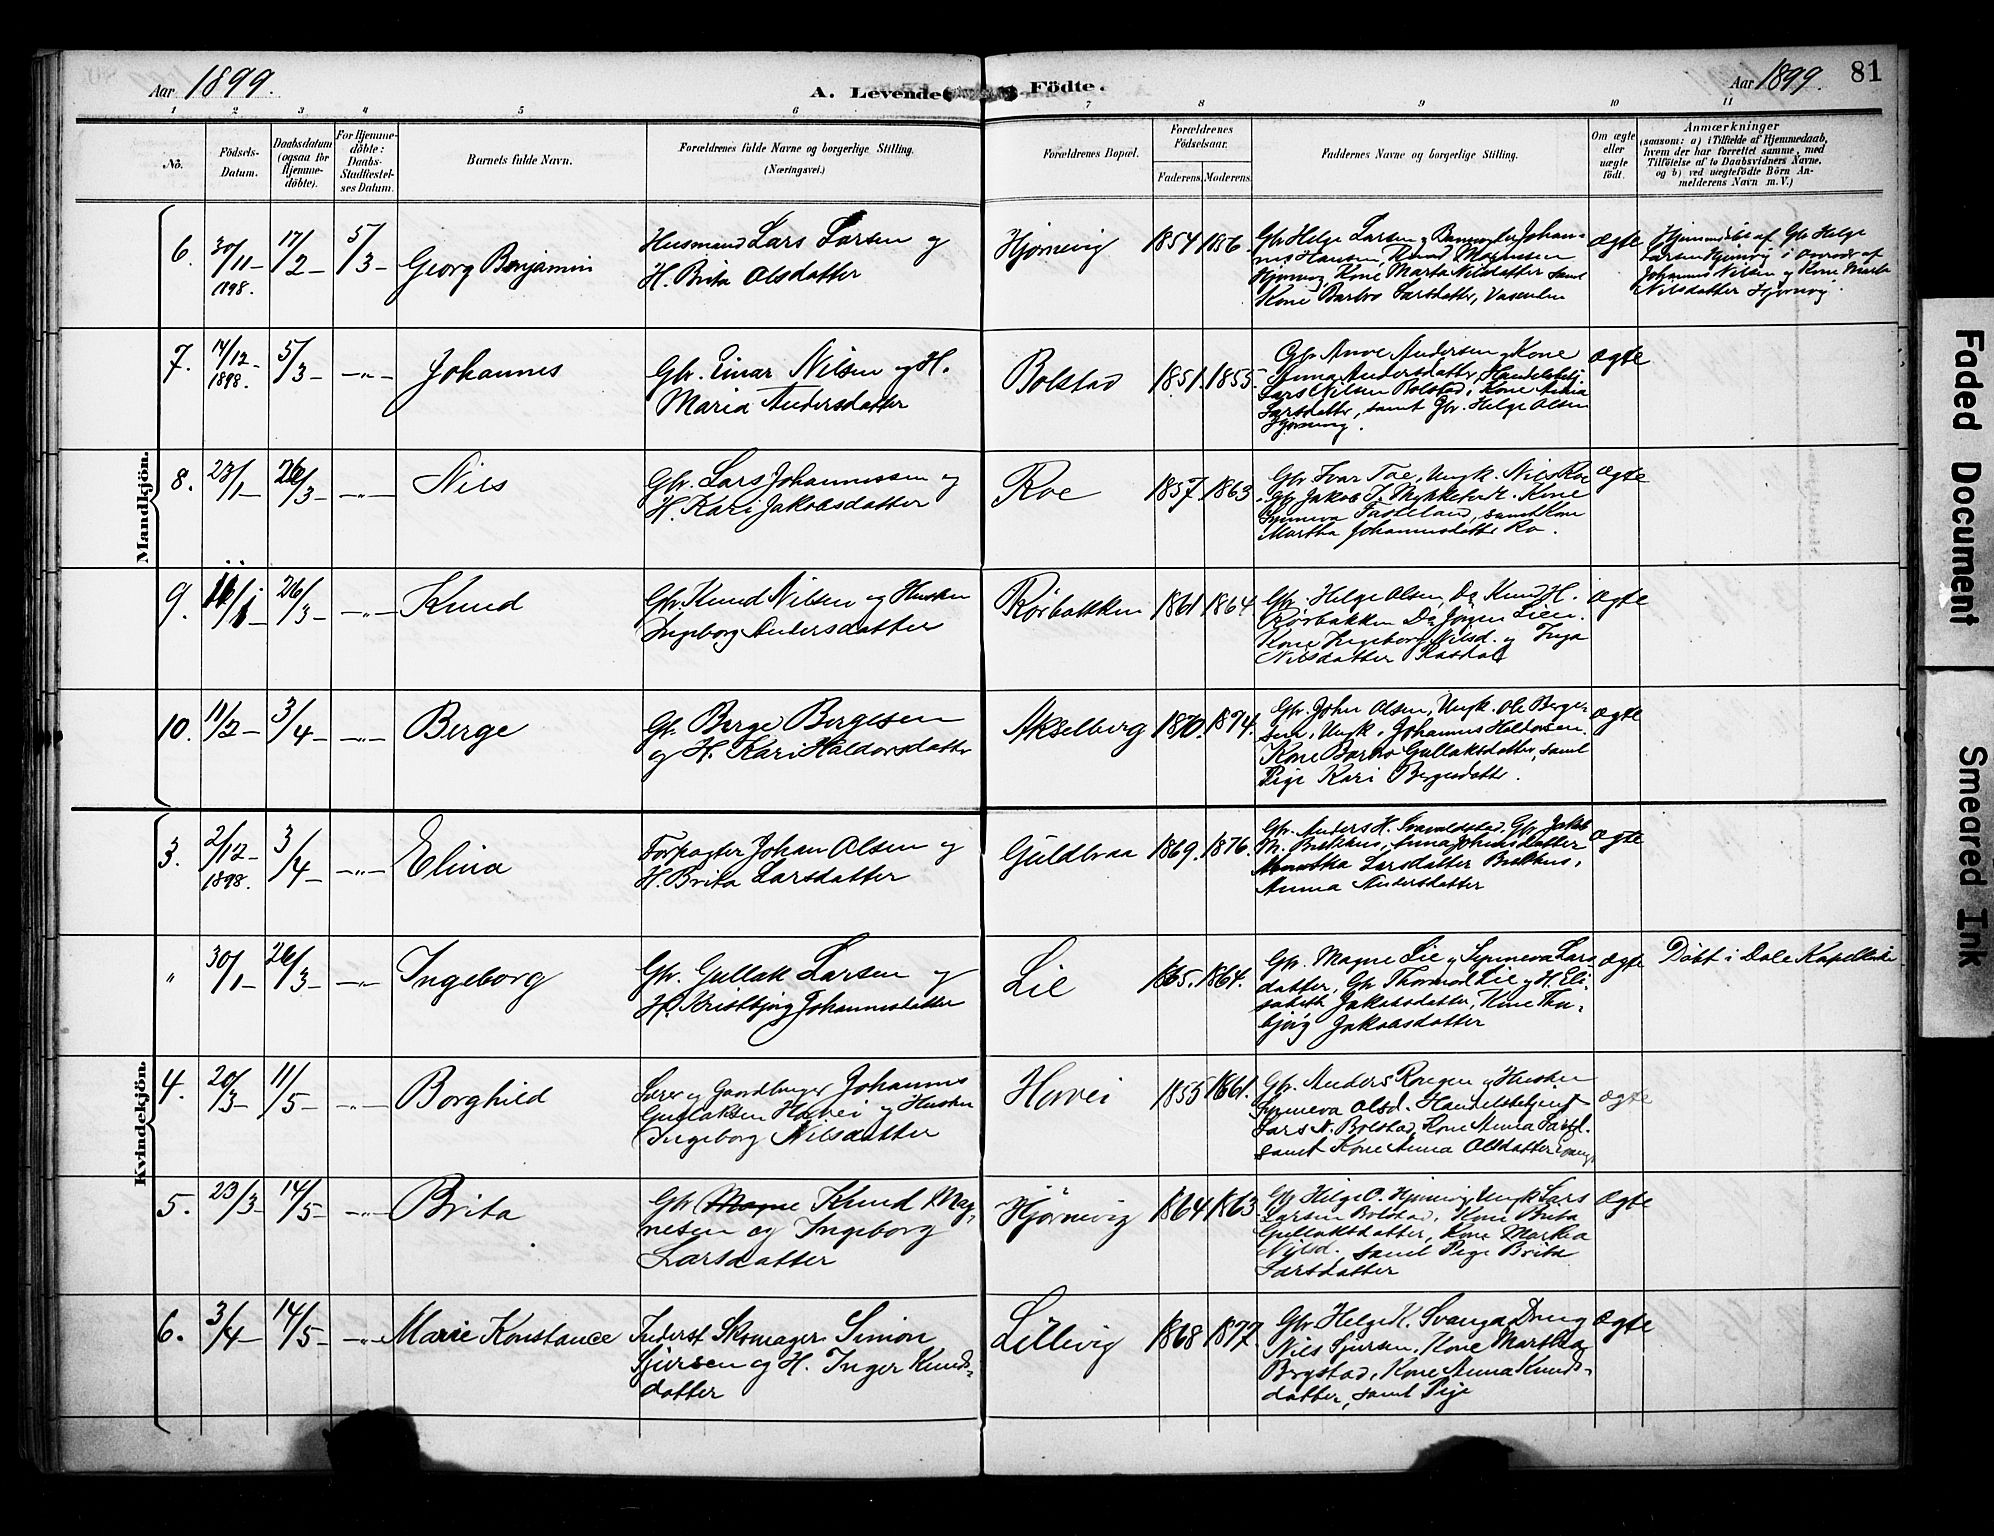 Aar 1899.
A. Levende Födte.
Aar 1899.
81
1 2 3 4 5 6 7 8 9 10 11
Nö.
Födsels-Datum.
Daabsdatum (ogsaa for Hjemme-döbte).
For Hjemme-döbte: Daabs-Stadfæstel-ses Datum.
Barnets fulde Navn.
Forældrenes fulde Navne og borgerlige Stilling.
(Næringsvei.)
Forældrenes Bopæl.
Forældrenes Födselsaar.
Faderens. Moderens.
Faddernes Navne og borgerlige Stilling.
Om ægte eller uægte födt.
Anmærkninger
(saasom: a) i Tilfælde af Hjemmedaab,
hvem der har forrettet samme, med
Tilföielse af to Daabsvidners Navne,
og b) ved uægtefödte Börn An-
melderens Navn m. V.)
Mandkjön.
6. 30/11 1898. 17/2 5/3 Georg Benjamin
Husmand Lars Larsen og
H. Brita Olsdatter
Hjørnevig 1854 186
Gbr Helge Larsen, Johan-
nes Hansen, Knud Magnussen
Hjørnevig, Kone Marta Nilsdatter samt
Kone Barbro Larsdatter,
ægte
Hjemmedøbt af Gbr Helge
Larsen Hjørnevig i Overvær af
Johannes Nilsen og Kone Marta
Nilsdatter Hjørnevig.
7. 14/12 1898. 5/3 —"— Johannes
Gbr. Einar Nilsen og H.
Maria Andersdatter
Bolstad 1851. 1855.
Gbr Andersen, Kone
Anna Andersdatter, Handelsbetj.
Lars Nilsen Bolstad, Kone Anna
Larsdatter, samt Gbr. Helge Olsen
Hjørnevig.
ægte
8. 23/1 26/3 —"— Nils
Gbr. Lars Johannessen og
H. Kari Jakobsdatter
Roe 1857. 1863
Gbr Ivar Toe, Ungk. Nils Roe
Gbr Jakob, Kone
Synneva, samt Kone
Martha Johannesdatter Ro.
ægte
9. 1 26/3 —"— Knud
Gbr. Knud Nilsen og Hustru
Ingeborg Andersdatter
Rørbakken 1861 1864
Gbr. Helge Olsen, Do Knud H.
Rørbakken Do Jörgen Lien.
Kone Ingeborg Nilsd. og Inga
Nilsdatter Rasdal
ægte
10. 11/2 3/4 —"— Berge
Gb. Berge Bergesen
og H. Kari Haldorsdatter
Akselberg 1870. 1874.
Gbr. John Olsen, Ungk. Ole Berge-
sen, Ungk. Johannes Haldorsen.
Kone Barbro Gullaksdatter, samt
Pige Kari Bergesdatter.
ægte
Kvindekjön.
3. 2/12 1898. 3/4 —"— Elina
Forpagter Johan Olsen og
H. Brita Larsdatter
Guldbraa 1869. 1876.
Gbr. Anders H., Gbr Jakob
M., Anna Johansdatter
Larsdatter,
Anna Andersdatter
ægte
" 30/1 26/3 —"— Ingeborg
Gbr. Gullak Larsen og
H. Kristbjörg Johannesdatter
Lie 1865. 1864.
Gbr. Magne Lie, Synneva Lars
datter, Gbr Thormod Lie og H. Eli-
sabeth Jakobsdatter, Kone Tha-
bjørg Jakobsdatter
ægte
Döbt i Dale Kapelkirke
4. 20/3 11/5 —"— Borghild
Lærer og Gaardbruger Johannes
Gullaksen Horvei og Hustru
Ingeborg Nilsdatter
Horvei 1855 1861.
Gbr. Anders Rongen og Hustru
Synneva Olsd. Handelsbetjent
Lars N. Bolstad, Kone Anna Larsd.
samt Kone Anna Olsdatter
ægte
5. 23/3 14/5 —"— Brita
Gbr Magne Knud Mag-
nesen og Ingeborg
Larsdatter
Hjørnevig 1864 1863
Gbr Helge O. Hjørnevig, Ungk Lars
Larsen Bolstad, Kone Brita
Gullaksdatter, Kone Martha
Nilsd., samt Pige Brita
Larsdatter
ægte
6. 3/4 14/5 —"— Marie Konstance
Inderst Skomager Simon
Sjursen og H. Inger Knuds-
datter
Lillevig 1868 1877.
Gbr. Helge K. Svanga, Dreng
Nils Sjursen, Kone Martha
Brystad, Kone Anna Knuds-
datter, samt Pige
ægte
Faded Document
Smeared Ink